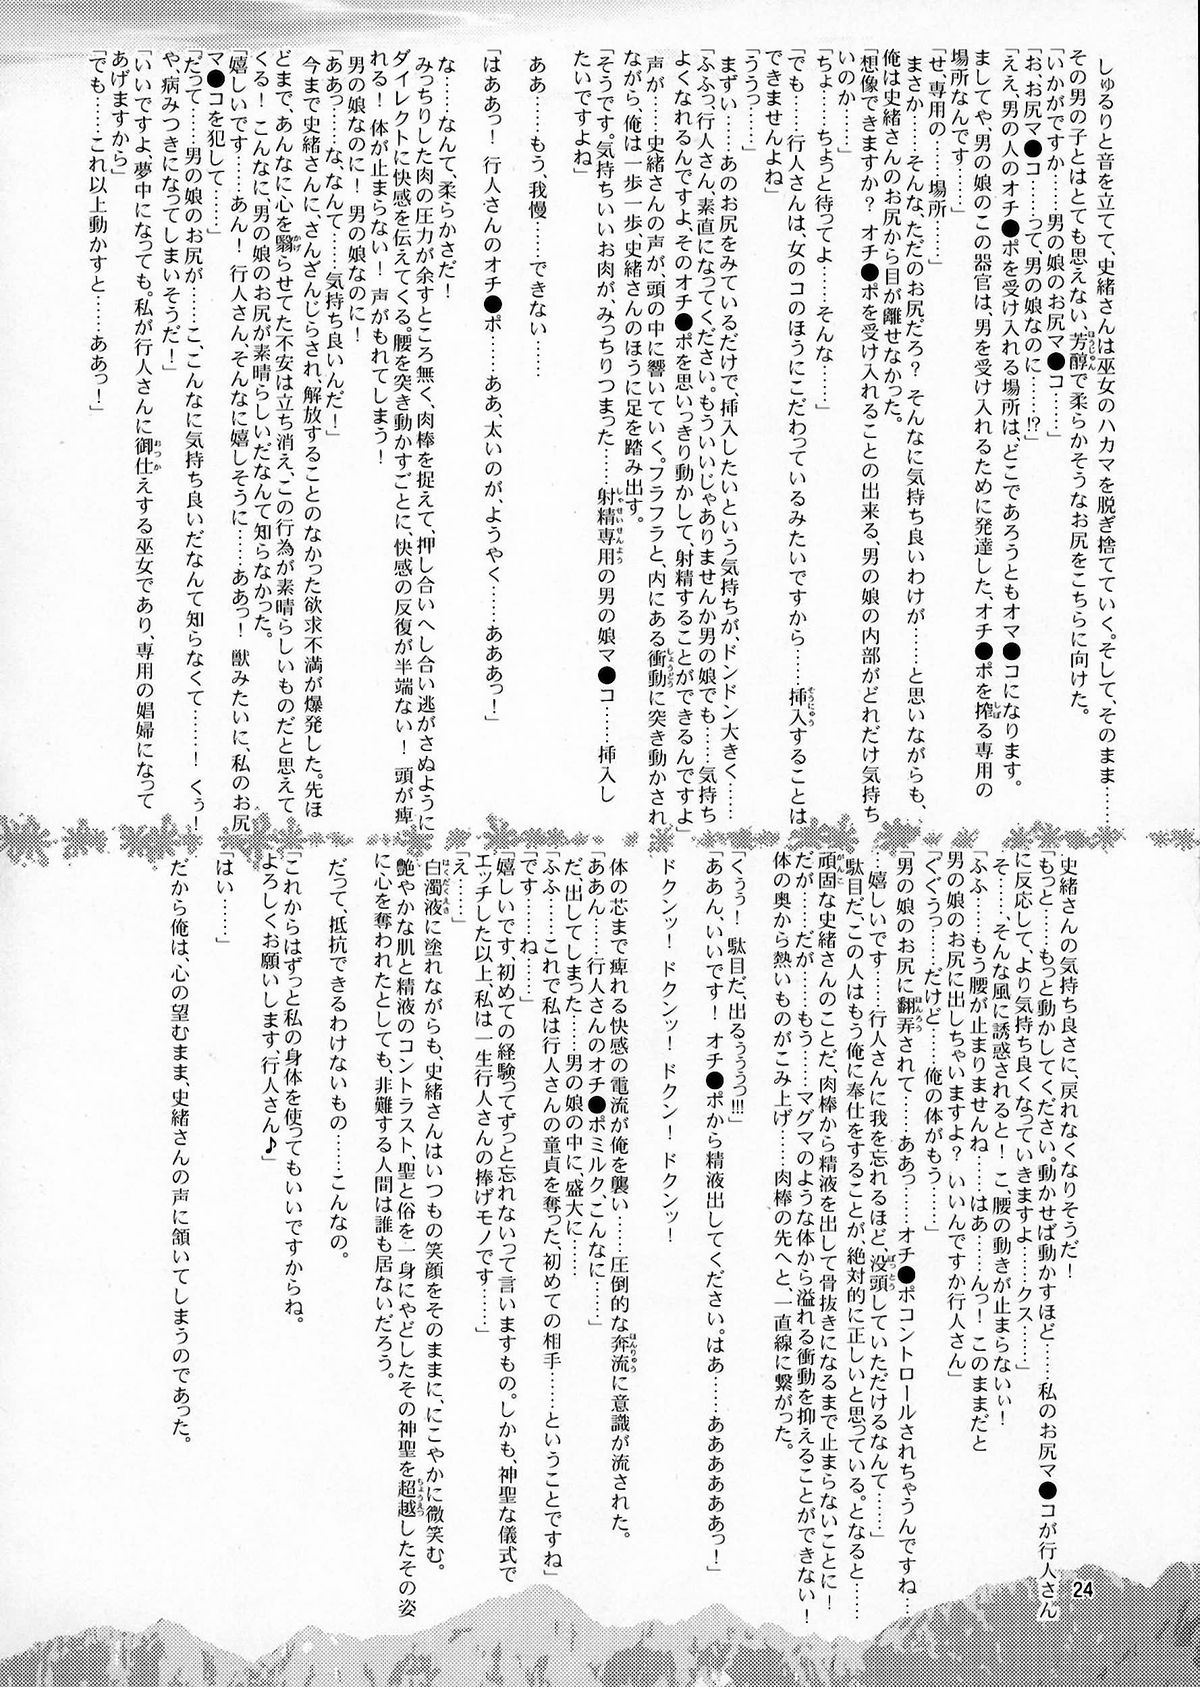 しゅるりと音を立てて、史緒さんは巫女のハカマを脱ぎ捨てていく。そして、そのまま……
その男の子とはとても思えない、芳醇で柔らかそうなお尻をこちらに向けた。
「いかがですか……男の娘のお尻マ●コ……」
「お、お尻マ●コ……って、男の娘なのに……!?」
「ええ、男の人のオチ●ポを受け入れる場所は、どこであろうともオマ●コになります。
ましてや、男の娘のこの器官は、男を受け入れるために発達した、オチ●ポを搾る専用の
場所なんです……」
「せ、専用の……場所……」
まさか……そんな、ただのお尻だろ？ そんなに気持ち良いわけが……と思いながらも、
俺は史緒さんのお尻から目が離せなかった。
「想像できますか？ オチ●ポを受け入れることの出来る、男の娘の内部がどれだけ気持ち
いいのか……」
「ちょ……ちょっと待ってよ……そんな……」
「でも……行人さんは、女のコのほうにこだわっているみたいですから……挿入することは
できませんよね」
「ううっ……」
まずい……あのお尻をみているだけで、挿入したいという気持ちが、ドンドン大きく……
「ふふっ、行人さん、素直になってください。もういいじゃありませんか男の娘でも……気持ち
よくなれるんですよ、そのオチ●ポを思いっきり動かして、射精することができるんですよ」
声が……史緒さんの声が、頭の中に響いていく。フラフラと、内にある衝動に突き動かされ
ながら、俺は一歩一歩、史緒さんのほうに足を踏み出す。
「そうです。気持ちいいお肉が、みっちりつまった……射精専用の男の娘マ●コ……挿入し
たいですよね」
ああ……もう、我慢……できない……
「はああっ！ 行人さんのオチ●ポ……ああ、太いのが、ようやく……あああっ！」
な……なんて、柔らかさだ！
みっちりした肉の圧力が余すところ無く、肉棒を捉えて、押し合いへし合い逃がさぬように
ダイレクトに快感を伝えてくる。腰を突き動かすごとに、快感の反復が半端ない！ 頭が痺
れる！ 体が止まらない！ 声がもれてしまう！
男の娘なのに！ 男の娘なのに！
「ああっ……な、なんて……気持ち良いんだ！」
今まで史緒さんに、さんざんじらされ、解放することのなかった欲求不満が爆発した。先ほ
どまで、あんなに心を翳らせてた不安は立ち消え、この行為が素晴らしいものだと思えて
くる！ こんなに、男の娘のお尻が素晴らしいだなんて知らなかった。
「嬉しいです……あん！ 行人さん、そんなに嬉しそうに……ああっ！ 獣みたいに、私のお尻
マ●コを犯して……」
「だって……男の娘のお尻が……こ、こんなに気持ち良いだなんて知らなくて……！ くぅ！
や、病みつきになってしまいそうだ！」
「いいですよ、夢中になっても。私が行人さんに御仕えする巫女であり、専用の娼婦になって
あげますから」
「でも……これ以上動かすと……ああっ！」
史緒さんの気持ち良さに、戻れなくなりそうだ！
「もっと……もっと動かしてください。動かせば動かすほど……私のお尻マ●コが行人さん
に反応して、より気持ち良くなっていきますよ……クス……」
そ……、そんな風に誘惑されると！ こ、腰の動きが止まらないぃ！
「ふふ……もう腰が止まりませんね……はあ……んっ！ このままだと
男の娘のお尻に出しちゃいますよ？ いいんですか行人さん」
「ぐぐうっ……だけど……俺の体がもう……」
「男の娘のお尻に翻弄されて……ああっ……オチ●ポコントロールされちゃうんですね…
…嬉しいです……行人さんに我を忘れるほど、没頭していただけるなんて……」
駄目だ、この人はもう俺に奉仕をすることが、絶対的に正しいと思っている。となると……
頑固な史緒さんのことだ、肉棒から精液を出して骨抜きになるまで止まらないことに！
だが……だが……もう……マグマのような体から溢れる衝動を抑えることができない！
体の奥から熱いものがこみ上げ……肉棒の先へと、一直線に繋がった。
「くぅぅ！ 駄目だ、出るぅぅうっ!!!」
「ああん、いいです！ オチ●ポから精液出してください。はあ……ああああああっ！」
ドクンッ！ ドクンッ！ ドクン！ ドクンッ！
体の芯まで痺れる快感の電流が俺を襲い……圧倒的な奔流に意識が流された。
「ああん……行人さんのオチ●ポミルク、こんなに……」
だ、出してしまった……男の娘の中に、盛大に……
「ふふ……これで私は行人さんの童貞を奪った、初めての相手……ということですね」
「です……ね……」
「嬉しいです、初めての経験ってずっと忘れないって言いますもの。しかも、神聖な儀式で
エッチした以上、私は一生行人さんの捧げモノです……」
「え……」
白濁液に塗れながらも、史緒さんはいつもの笑顔をそのままに、にこやかに微笑む。
艶やかな肌と精液のコントラスト、聖と俗を一身にやどしたその神聖を超越したその姿
に心を奪われたとしても、非難する人間は誰も居ないだろう。
だって、抵抗できるわけないもの……こんなの。
「これからはずっと私の身体を使ってもいいですからね。
よろしくお願いします、行人さん♪」
「はい……」
だから俺は、心の望むまま、史緒さんの声に頷いてしまうのであった。
24